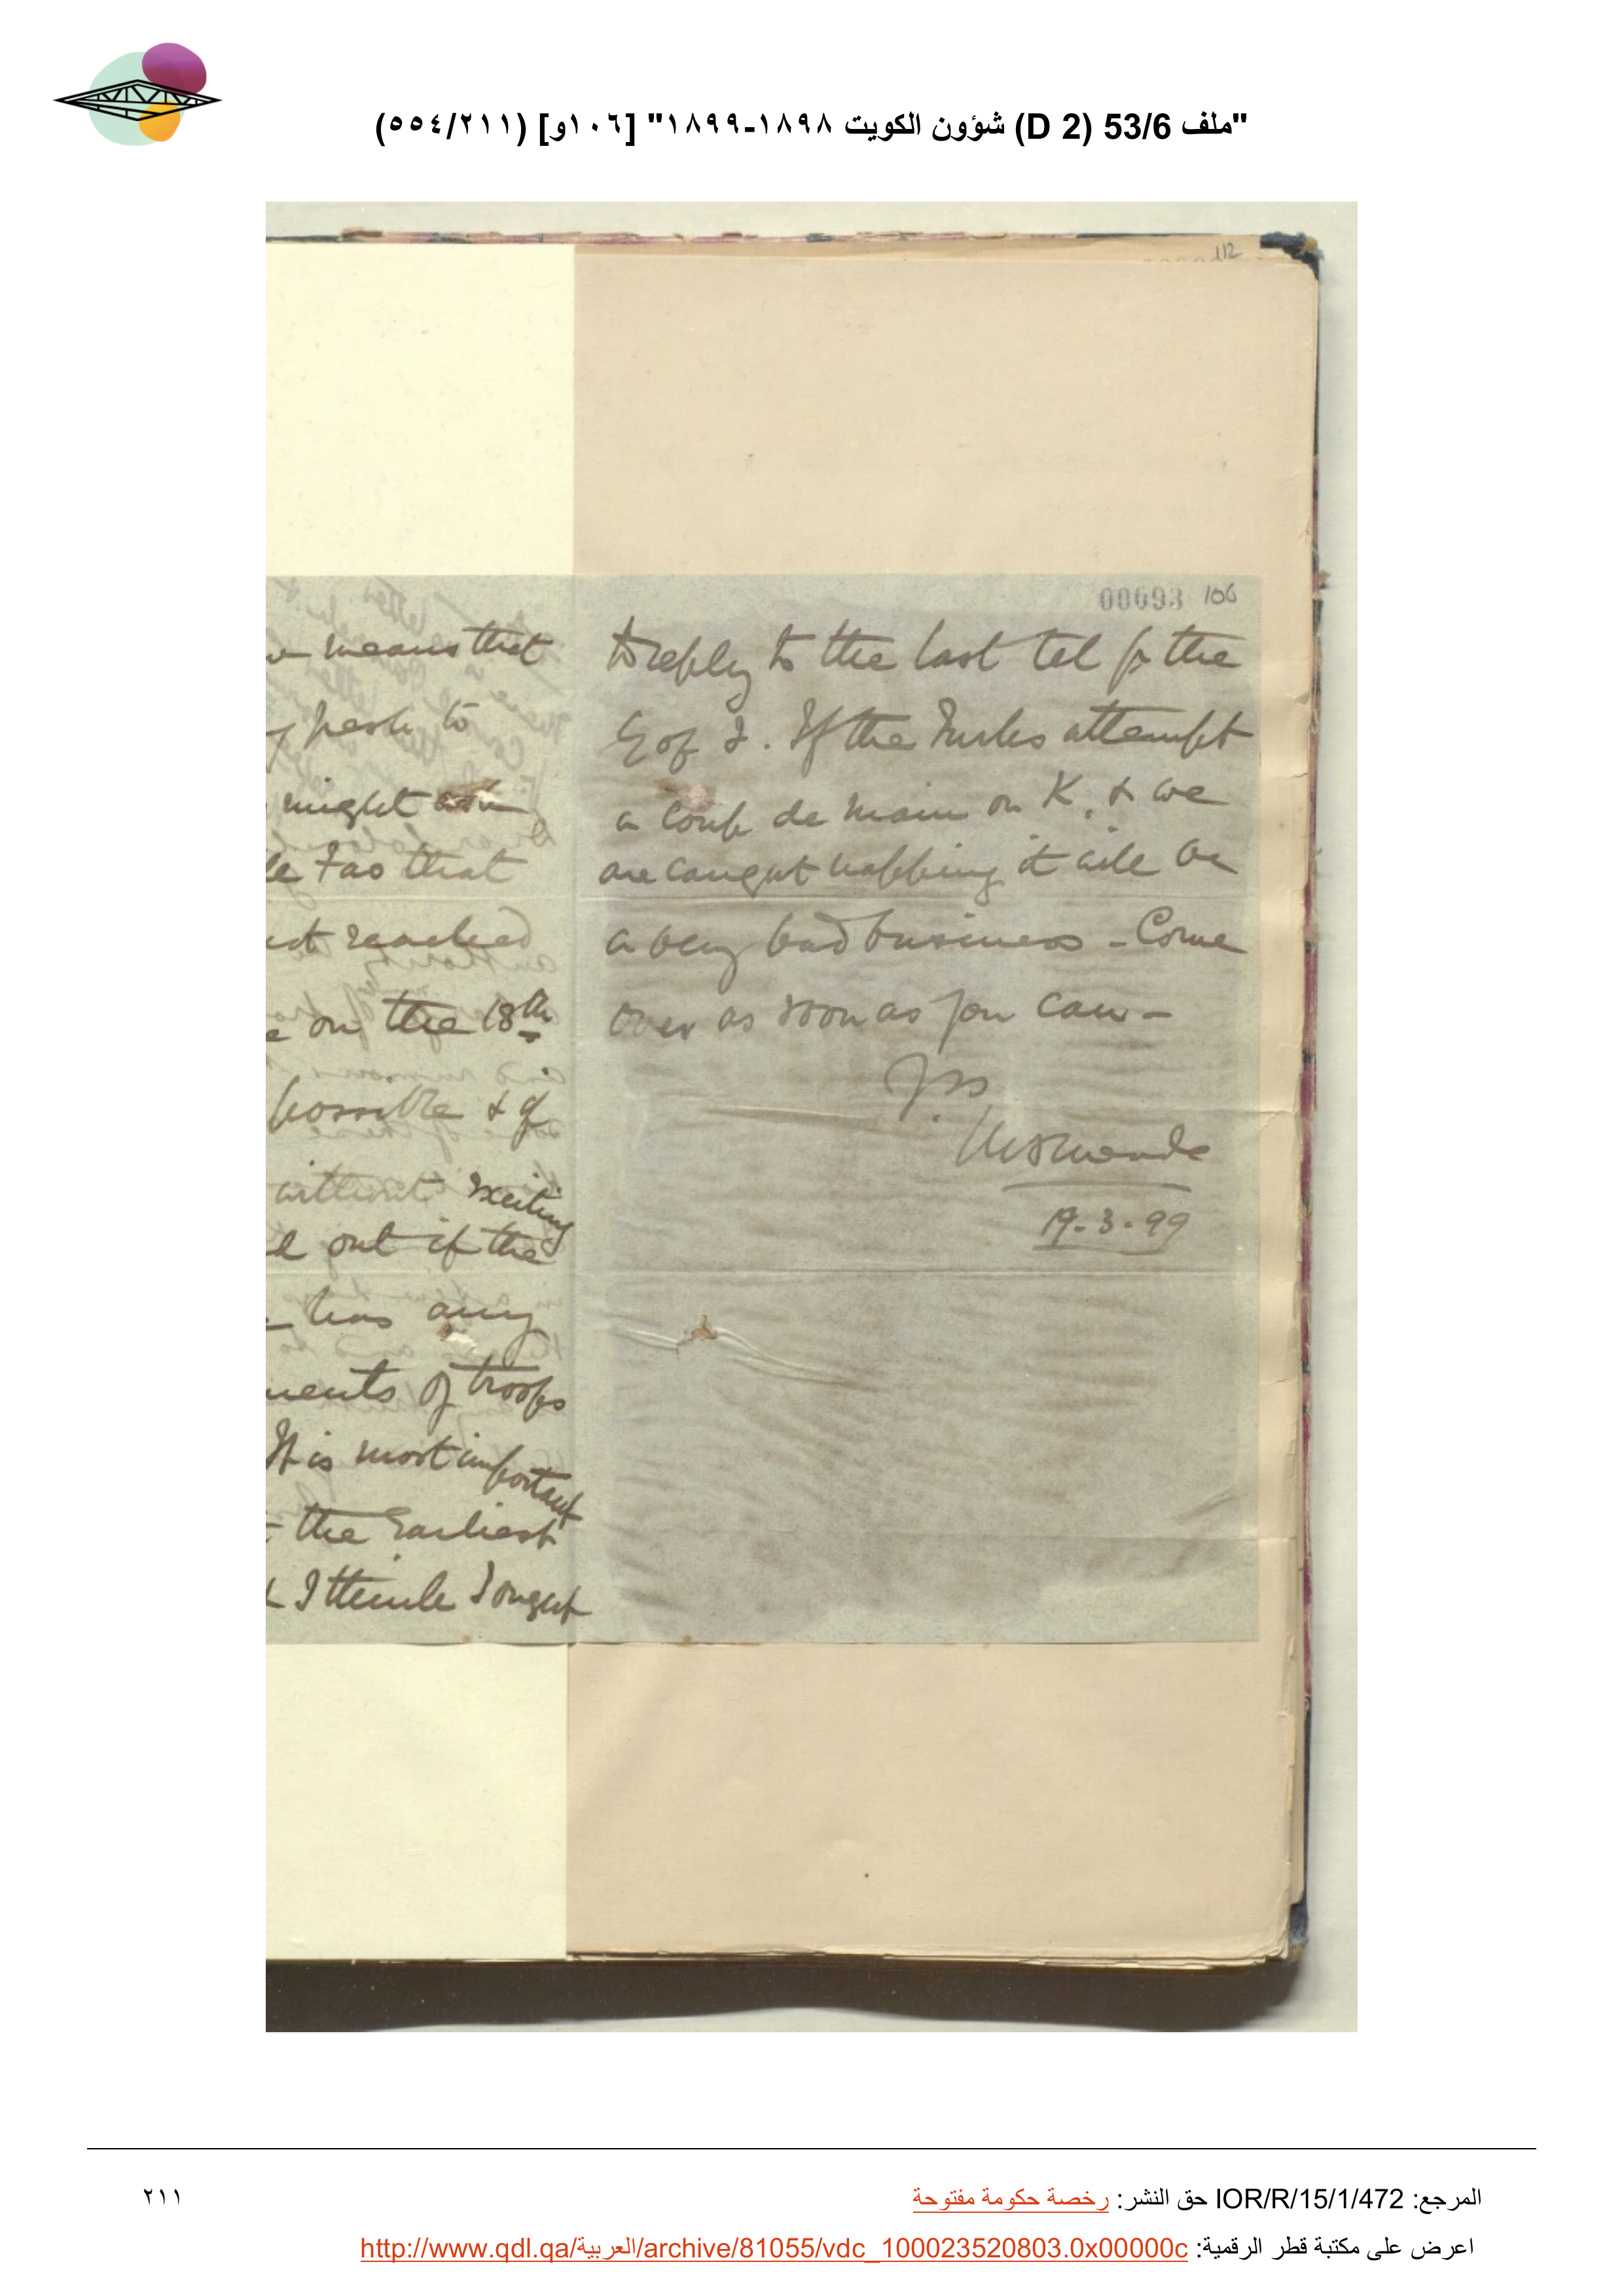 "ملف 53/6 (D 2) شؤون الكويت ١٨٩٨-١٨٩٩" [١٠٦و] (٥٥٤/٢١١)
112
00093 106
means that
pesh to
might
Fao that
reached
on the 18th
possible & if
without exciting
out if the
has any
ments of troops
It is most important
the earliest
I think I ought
to reply to the last tel fr the
G of I. If the Turks attempt
a coup de main on K. & we
are caught napping it will be
a very bad business - Come
over as soon as you can -
Yrs
19-3-99
المرجع: IOR/R/15/1/472 حق النشر: رخصة حكومة مفتوحة
٢١١
اعرض على مكتبة قطر الرقمية: http://www.qdl.qa/العربية/archive/81055/vdc_100023520803.0x00000c